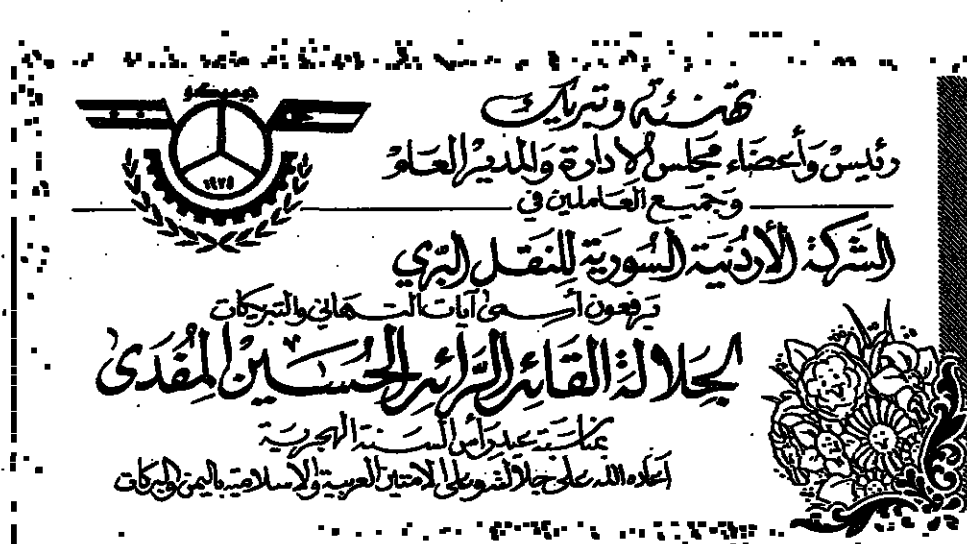 جيمونكو
١٩٧٥
تهنئة وتبريك
رئيس وأعضاء مجلس الادارة والمدير العام
وجميع العاملين في
الشركة الأردنية السورية للنقل البري
يرفعون أسمى آيات التهاني والتبريكات
لجلالة القائد الرائد الحسين المفدى
بمناسبة عيد رأس السنة الهجرية
اعاده الله على جلالته وعلى الامتين العربية والاسلامية باليمن والبركات